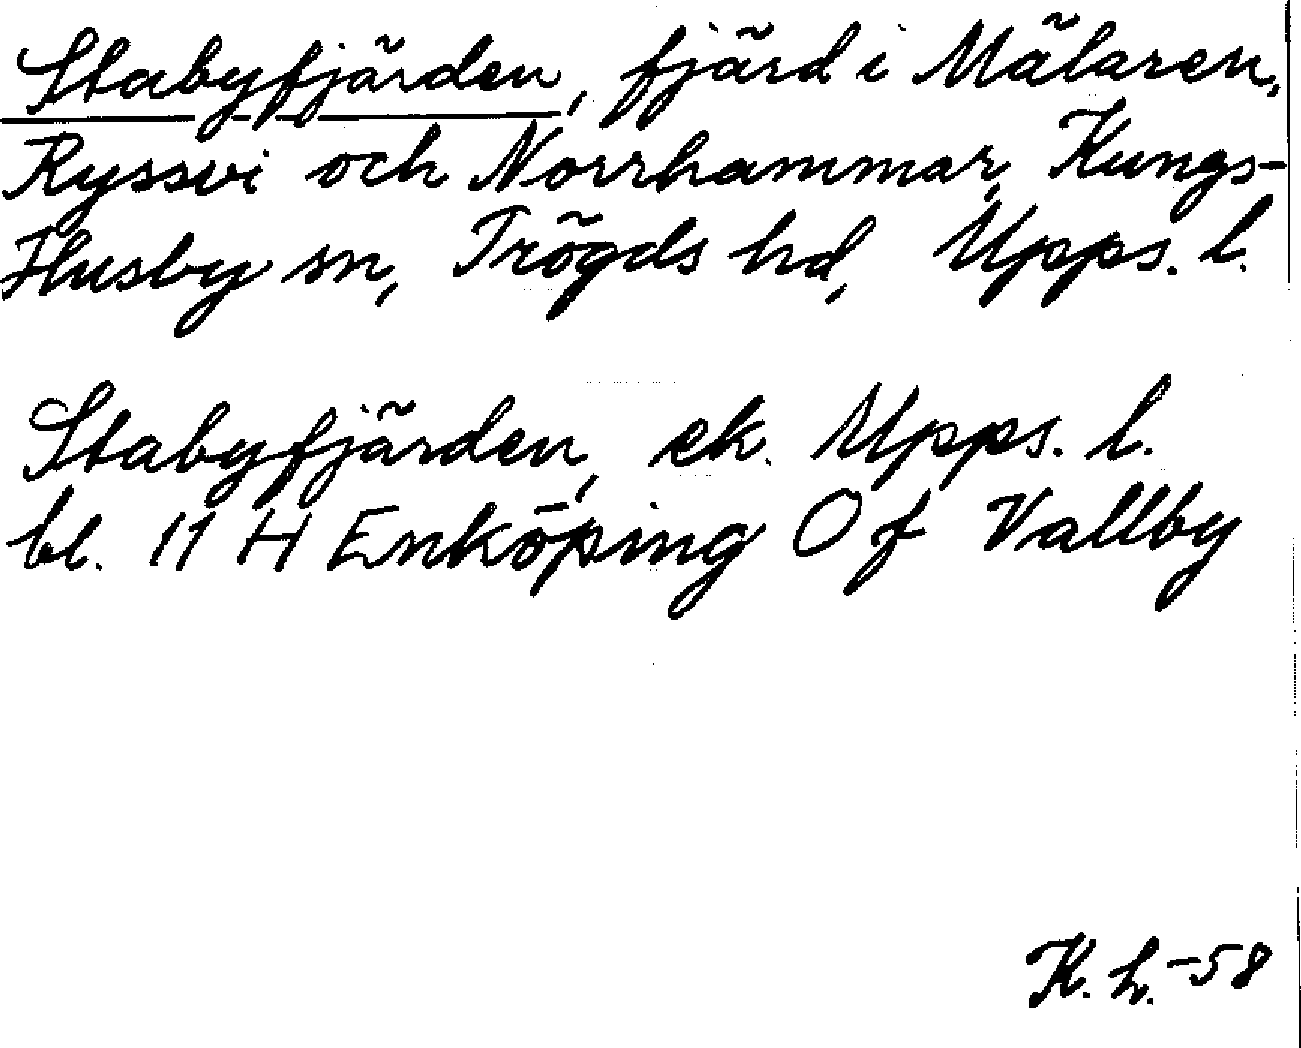 Stabyfjärden, fjärd i Mälaren,
Ryssvi och Norrhammar, Kungs-
Husby sn, Trögds hd, Upps. l.
Stabyfjärden, ek. Upps. l.
bl. 11 H Enköping Of Vallby
K. h. -58